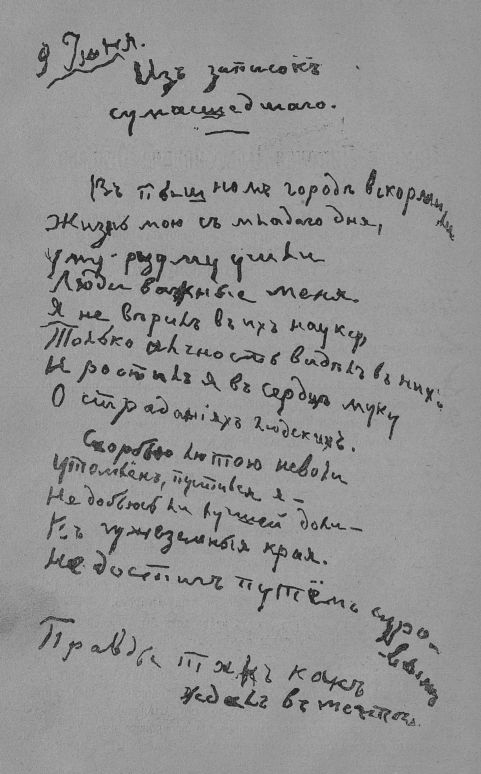 9 Июня.
Изъ записокъ
сумасшедшаго.
Въ пышномъ городѣ вскормили
Жизнь мою съ младаго дня,
Уму-разуму учили
Люди важные меня.
Я не вѣрилъ въ ихъ науку,
Только алчность видѣлъ въ нихъ
И растилъ я въ сердцѣ муку
О страданіяхъ людскихъ.
Скорбью лютою неволи
Утомлёнъ, пустился я –
Не добьюсь ли лучшей доли –
Къ чужеземныя края.
Не достигъ путёмъ суро-
вымъ
Правды такъ какъ
ждалъ въ мечтахъ.